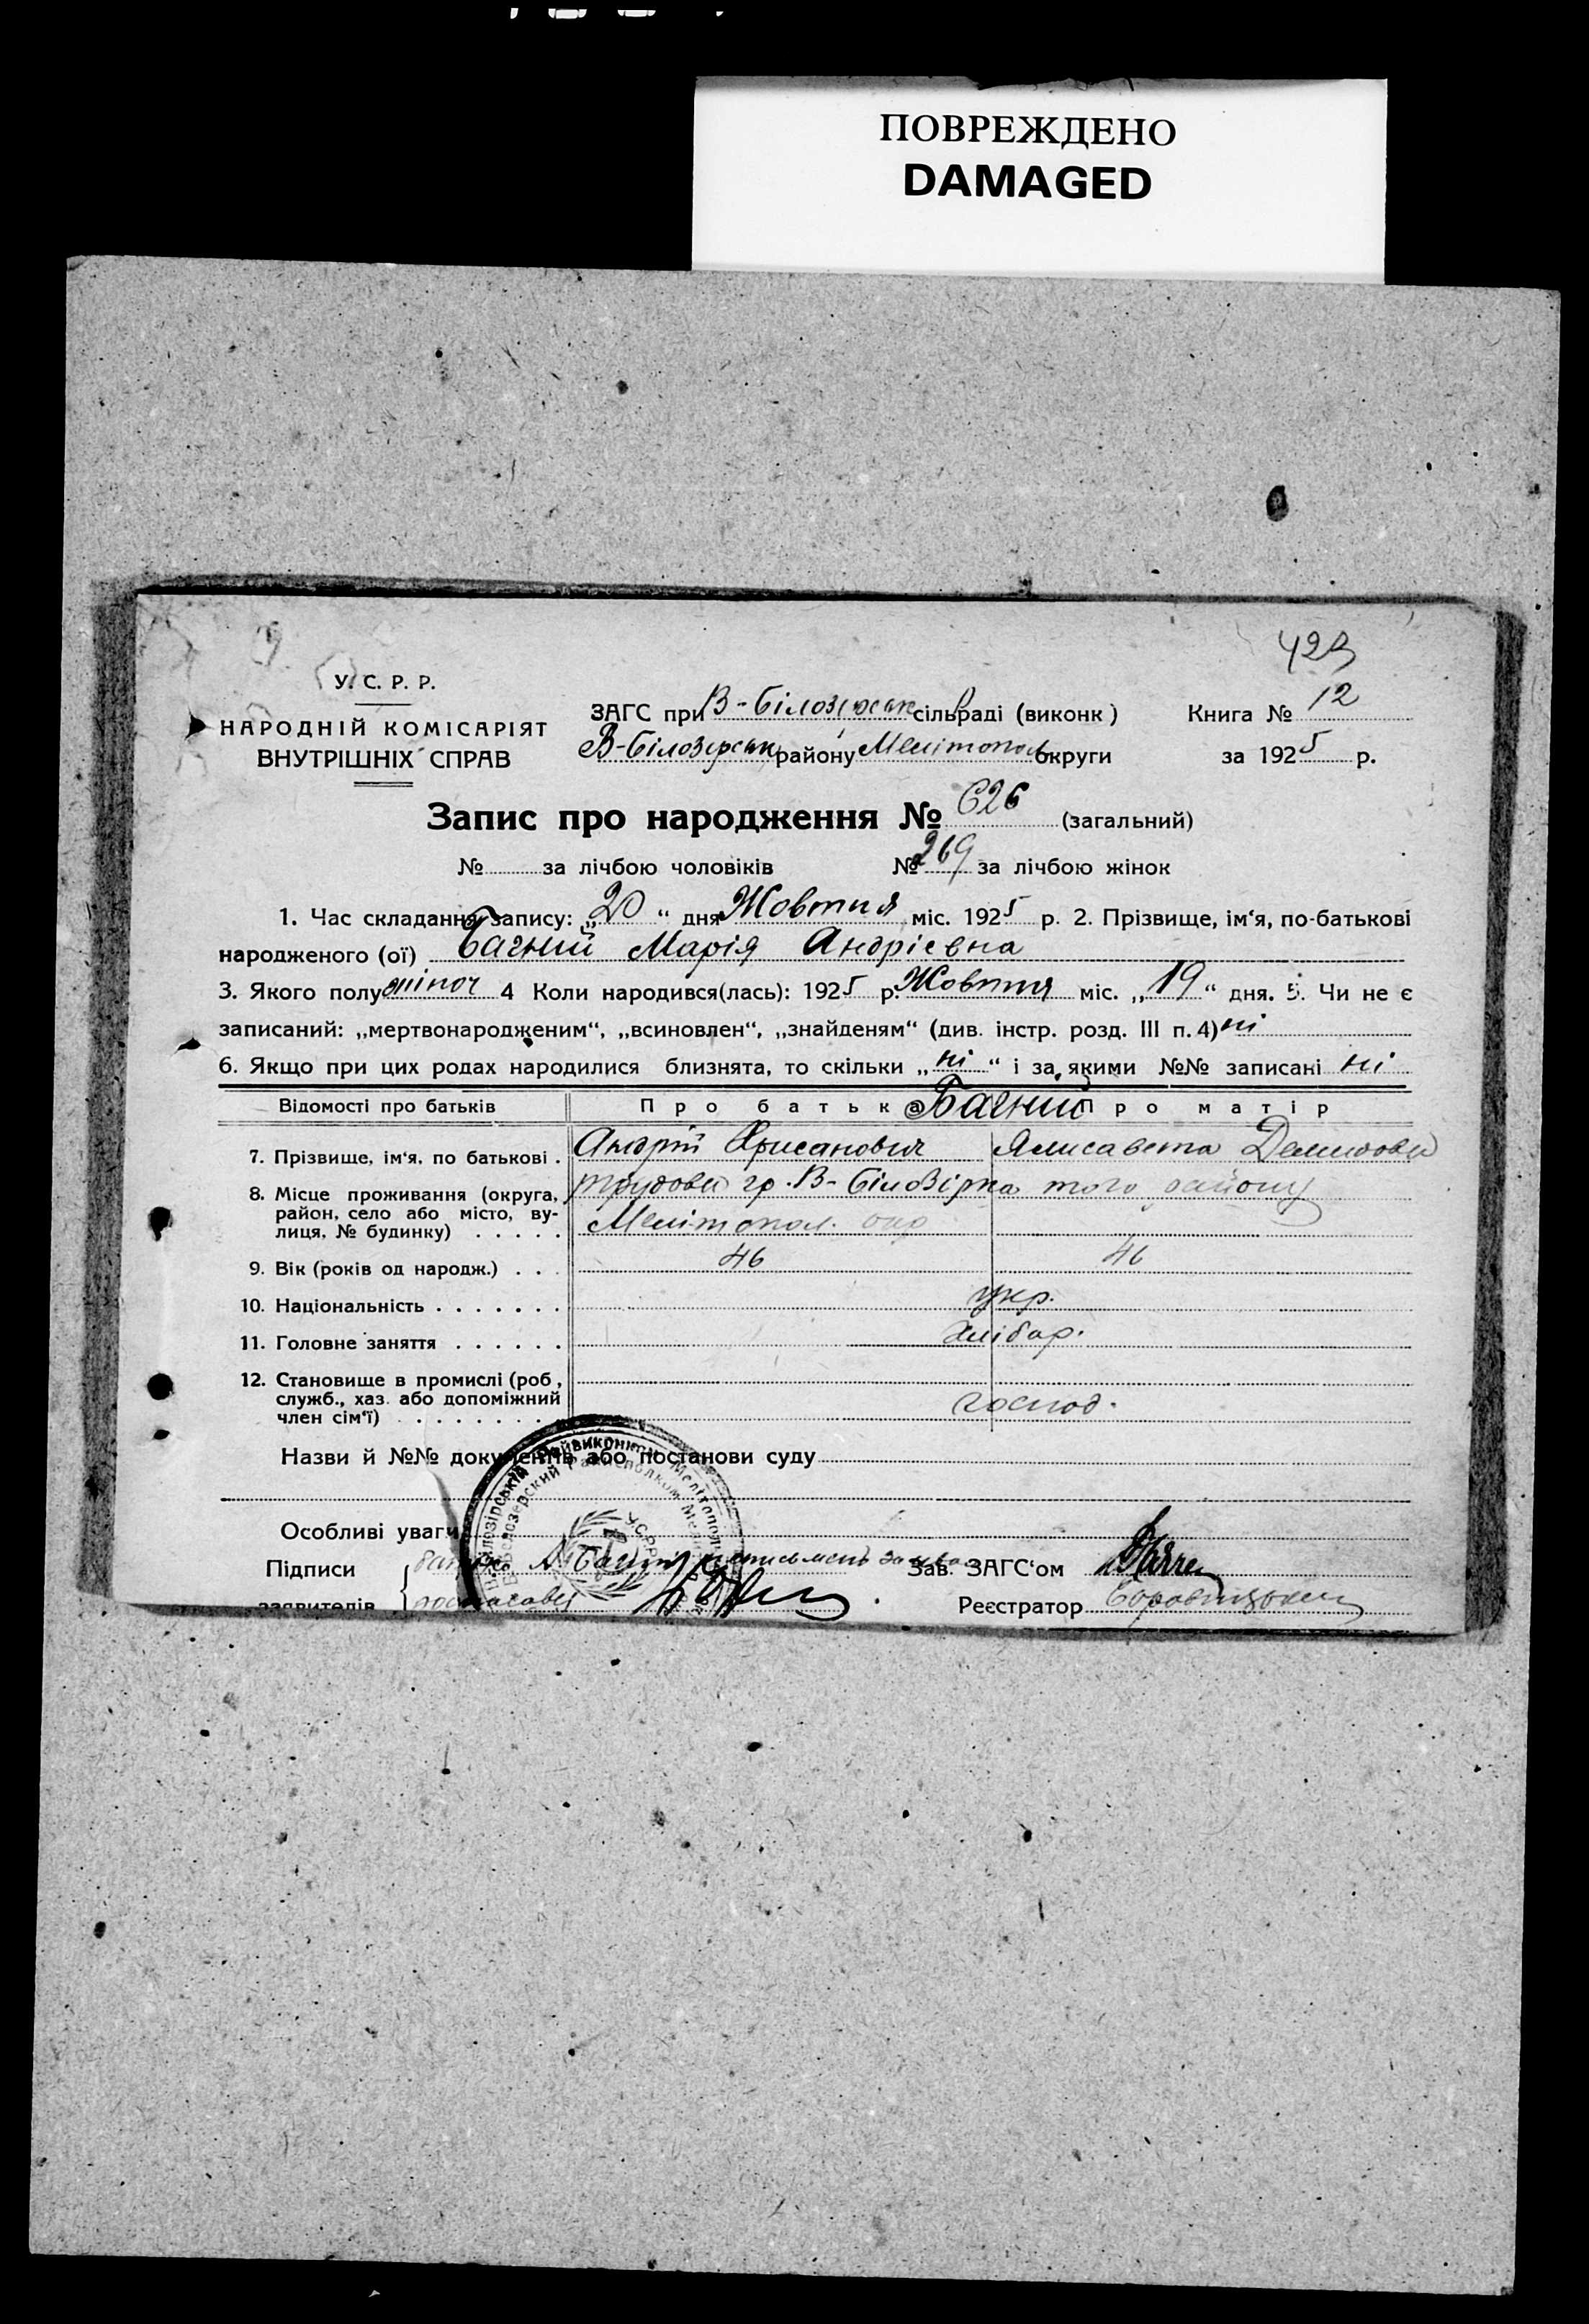 ПОВРЕЖДЕНО
DAMAGED
423
У. С. Р. Р.
НАРОДНІЙ КОМІСАРІЯТ
ВНУТРІШНІХ СПРАВ
ЗАГС при В-Білозірськ сільраді (виконк)
В-Білозірськ району Мелітопол округи
Книга № 12
за 1925 р.
Запис про народження № 626 (загальний)
№ за лічбою чоловіків № 269 за лічбою жінок
1. Час складання запису: „20“ дня Жовтня міс. 1925 р. 2. Прізвище, ім‘я, по-батькові
народженого (ої) Бачний Марія Андрієвна
3. Якого полу жіноч 4 Коли народився(лась): 1925 р. Жовтня міс. „19“ дня. 5. Чи не є
записаний: „мертвонародженим“, „всиновлен“, „знайденям“ (див. інстр. розд. III п. 4) ні
6. Якщо при цих родах народилися близнята, то скільки „ні“ і за якими №№ записані ні
Відомості про батьків Про батька Бачний Про матір
7. Прізвище, ім‘я, по батькові . Андрій Хрисанович Ялисавета Демидовна
8. Місце проживання (округа, район, село або місто, вулиця, № будинку) . . . . . гр. В-Білозірка того району
Мелітопол. окр
9. Вік (років од народж.) . . . 46 46
10. Національність . . . . . . . укр.
11. Головне заняття . . . . . . хлібор.
12. Становище в промислі (роб, служб., хаз. або допоміжний член сім‘ї) . . . . . . . господ.
Назви й №№ документів або постанови суду
Особливі уваги
Підписи
заявителів
Зав. ЗАГС‘ом
Реєстратор